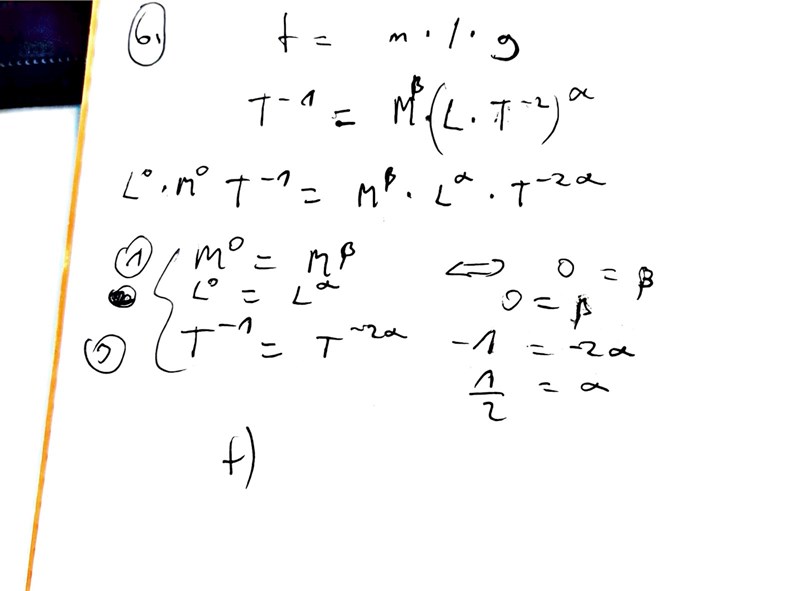 6, f = m · l · g
T⁻¹ = M^β · (L · T⁻²)^α
L⁰ · M⁰ T⁻¹ = M^β · L^α · T^(-2α)
① M⁰ = M^β ⟺ 0 = β
L⁰ = L^α 0 = β
② T⁻¹ = T^(-2α) -1 = -2α
1/2 = α
f)